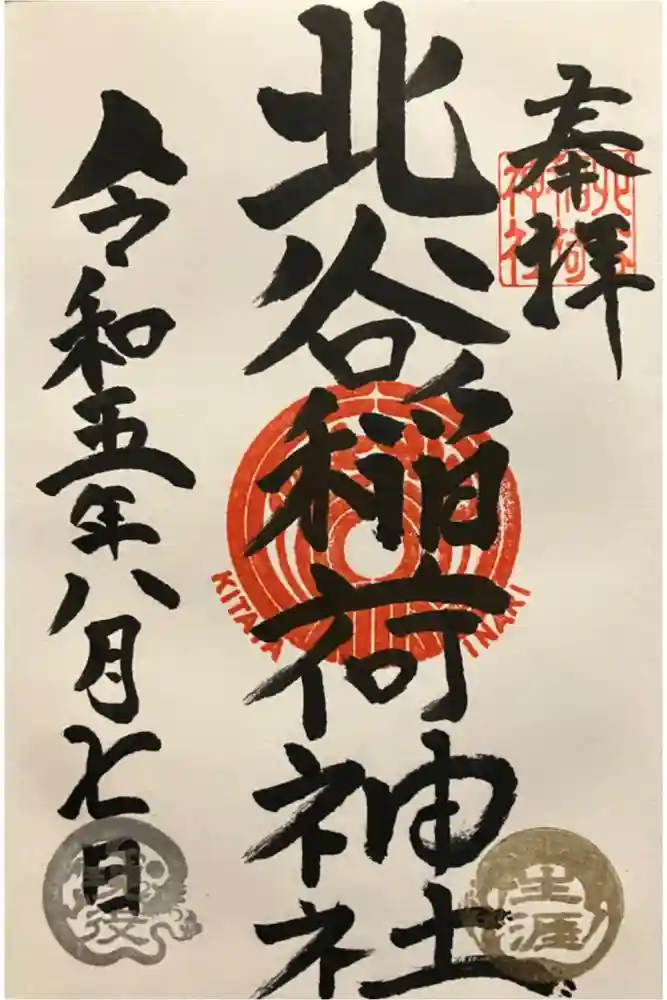 奉拝
北谷稲荷神社
北谷稲荷神社
KITAYA INARI
令和五年八月七日
生涯
現役